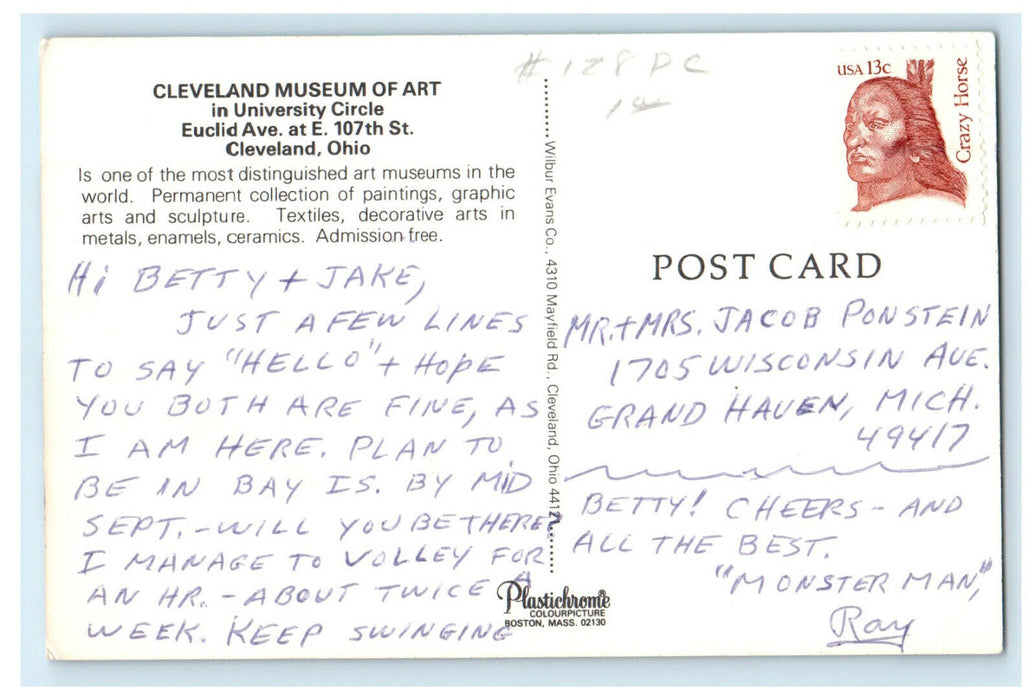 CLEVELAND MUSEUM OF ART
in University Circle
Euclid Ave. at E. 107th St.
Cleveland, Ohio
Is one of the most distinguished art museums in the
world. Permanent collection of paintings, graphic
arts and sculpture. Textiles, decorative arts in
metals, enamels, ceramics. Admission free.
Hi BETTY + JAKE,
JUST A FEW LINES
TO SAY "HELLO" + HOPE
YOU BOTH ARE FINE, AS
I AM HERE. PLAN TO
BE IN BAY IS. BY MID
SEPT. - WILL YOU BE THERE?
I MANAGE TO VOLLEY FOR
AN HR. - ABOUT TWICE A
WEEK. KEEP SWINGING
Wilbur Evans Co., 4310 Mayfield Rd., Cleveland, Ohio 44121
Plastichrome®
COLOURPICTURE
BOSTON, MASS. 02130
#128 PC
USA 13c
Crazy Horse
POST CARD
MR. + MRS. JACOB PONSTEIN
1705 WISCONSIN AVE.
GRAND HAVEN, MICH.
49417
BETTY! CHEERS - AND
ALL THE BEST.
"MONSTER MAN,"
Ray